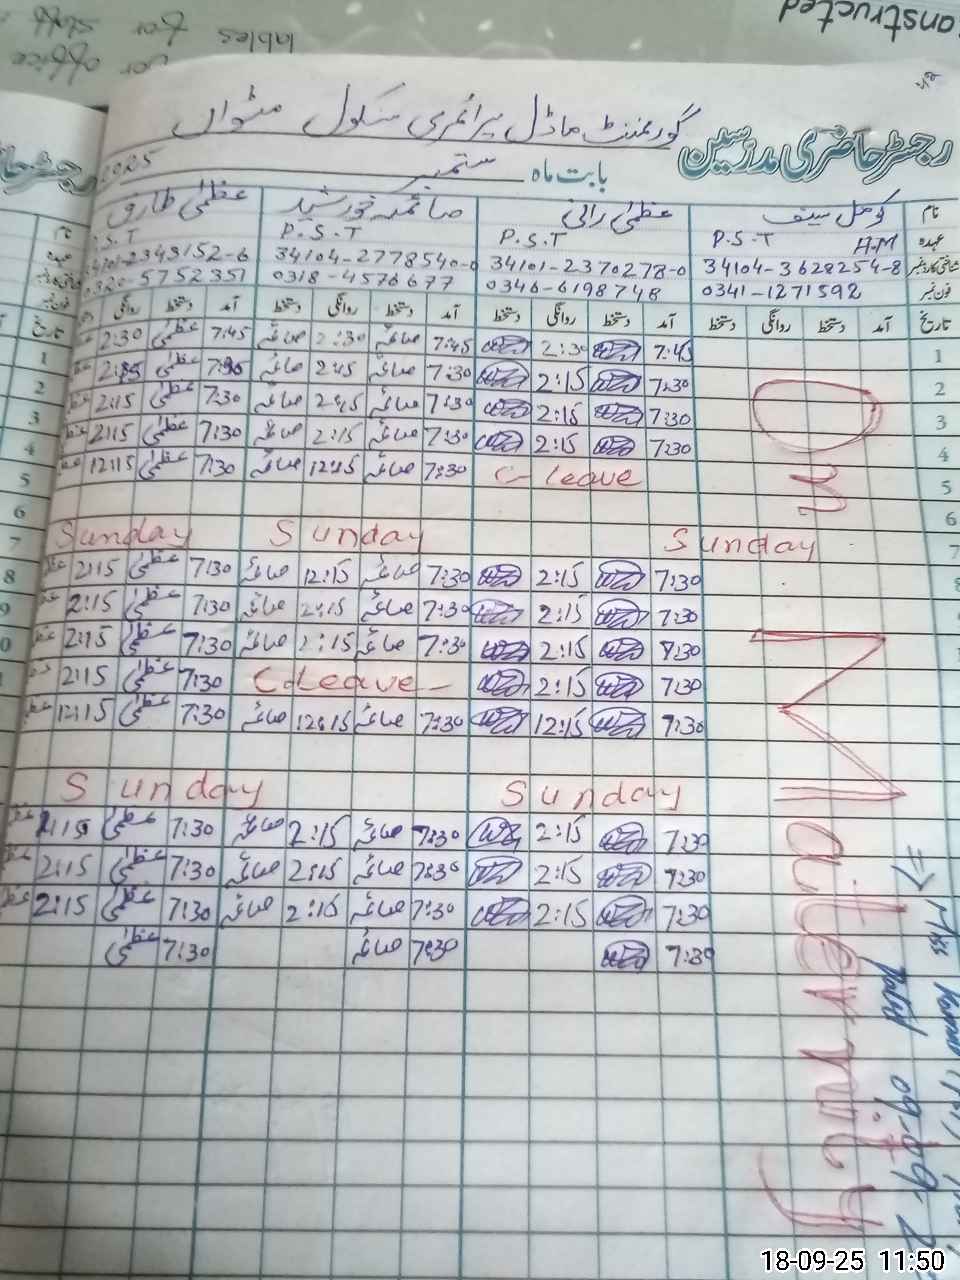 constructed
Tables for staff
for office
رجسٹر حاضری مدرسین گورنمنٹ ماڈل پرائمری سکول مٹواں
بابت ماہ ستمبر 2025
نام کومل سیف عظمیٰ رانی صائمہ خورشید عظمیٰ طارق
عہدہ H.M P.S.T P.S.T P.S.T S.T
شناختی کارڈ نمبر 34104-3628254-8 34101-2370278-0 34104-2778540-0 34101-2349152-6
فون نمبر 0341-1271592 0346-6198748 0318-4576677 0320-5752351
تاریخ آمد دستخط روانگی دستخط آمد دستخط روانگی دستخط آمد دستخط روانگی دستخط آمد دستخط روانگی
1 7:45 2:30 7:45 صائمہ 2:30 صائمہ 7:45 عظمیٰ 2:30
2 7:30 2:15 7:30 صائمہ 2:15 صائمہ 7:30 عظمیٰ 2:15
3 7:30 2:15 7:30 صائمہ 2:15 صائمہ 7:30 عظمیٰ 2:15
4 7:30 2:15 7:30 صائمہ 2:15 صائمہ 7:30 عظمیٰ 2:15
5 C-leave 7:30 صائمہ 12:15 صائمہ 7:30 عظمیٰ 12:15
6
7 Sunday Sunday Sunday
8 7:30 2:15 7:30 صائمہ 12:15 صائمہ 7:30 عظمیٰ 2:15
9 7:30 2:15 7:30 صائمہ 2:15 صائمہ 7:30 عظمیٰ 2:15
7:30 2:15 7:30 صائمہ 2:15 صائمہ 7:30 عظمیٰ 2:15
7:30 2:15 C Leave 7:30 عظمیٰ 2:15
7:30 12:15 7:30 صائمہ 12:15 صائمہ 7:30 عظمیٰ 12:15
Sunday Sunday
7:30 2:15 7:30 صائمہ 2:15 صائمہ 7:30 عظمیٰ 2:15
7:30 2:15 7:30 صائمہ 2:15 صائمہ 7:30 عظمیٰ 2:15
7:30 2:15 7:30 صائمہ 2:15 صائمہ 7:30 عظمیٰ 2:15
7:30 7:30 صائمہ 7:30 عظمیٰ
On Maternity
Miss
09-09-2
18-09-25 11:50